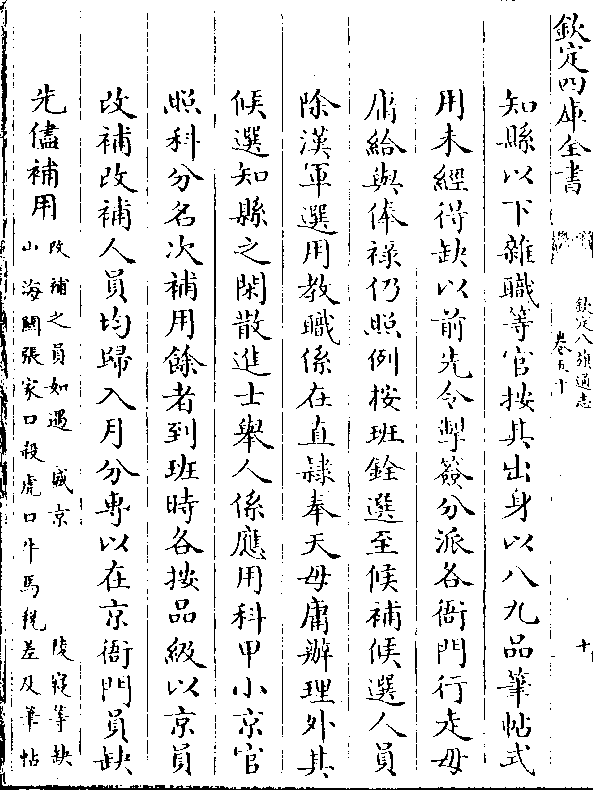 欽定四庫全書
欽定八旗通志
卷五十
十
知縣以下雜職等官按其出身以八九品筆帖式
用未經得缺以前先令掣簽分派各衙門行走毋
庸給與俸祿仍照例按班銓選至候補候選人員
除漢軍選用教職係在直隸奉天毋庸辦理外其
候選知縣之閑散進士舉人係應用科甲小京官
照科分名次補用餘者到班時各按品級以京員
改補改補人員均歸入月分專以在京衙門員缺
先儘補用
改補之員如遇 盛京 陵寢等缺
山海關張家口殺虎口牛馬稅差及筆帖